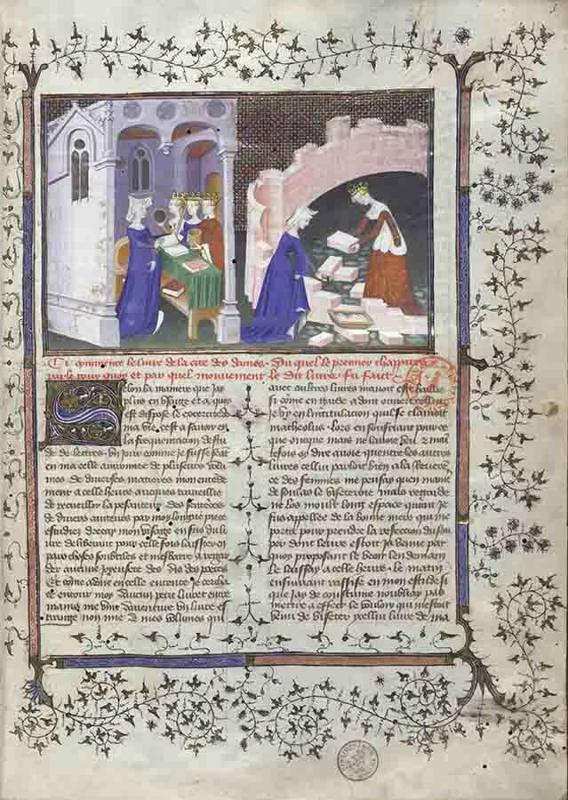 Cy commence le livre de la cite des dames · Du quel le premier chappitre
parle pour quoy et par quel mouvement le dit livre fu fait
Selon la maniere que jay
plus en usage et a quoy
est dispose le excercice de
ma vie. cest a savoir en
la frequentacion destu
de de lettres. un jour comme je fusse seant
en ma celle avironnee de plusieurs volu
mes de diverses matieres mon entende
ment a celle heure auques traveillie
de recueillir la pesanteur des sentences
de divers aucteurs par moy longue piece
estudiez drecay mon visage en sus du li
vre deliberant pour celle fois laissier en
paix choses soubtilles et mesbatre a regar
der aucune joyeusete des dis des poetes
Et comme adonc en celle entente je cerchasse
entour moy daucun petit livret entre
mains me vint daventure un livre es
trange non mie de mes volumes qui
avec autres livres mavoit este baillie
si comme en garde adonc ouvert cellui
je vy en lintitulacion quil se clamoit
matheolus. Lors en sousriant pour ce
que oncques mais ne lavoie veu et mai
tefois ouy dire avoie quentre les autres
livres cellui parloit bien a la reveren
ce des femmes me pensay quen manie
de soulas le visiteroie mais regarde
ne los moult long espace quant je
fus appellee de la bonne mere qui me
porta pour prendre la reffection du soup
per dont leure estoit ja venue par
quoy proposant le veoir lendemain
le laissay a celle heure. Le matin
ensuivant rassise en mon estude si
que jay de coustume noubliay pas
mettre a effect le vouloir qui mestoit
venu de visiter ycellui livre de ma